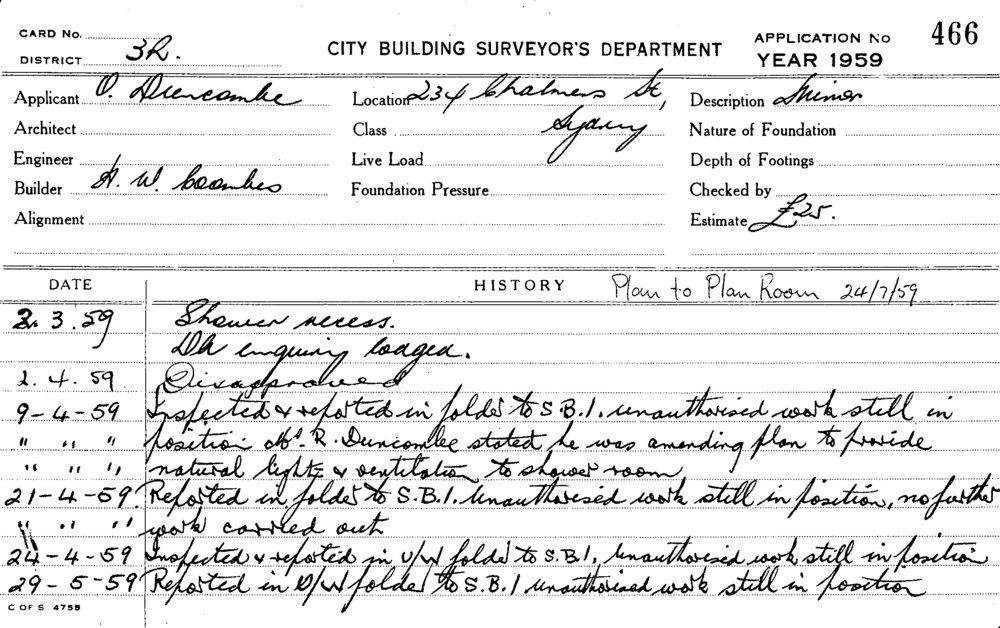 CARD No.
DISTRICT 3R.
CITY BUILDING SURVEYOR'S DEPARTMENT
APPLICATION No 466
YEAR 1959
Applicant O. Duncombe
Location 234 Chalmers St,
Description Minor
Architect
Class Sydney
Nature of Foundation
Engineer
Live Load
Depth of Footings
Builder H. W. Coombes
Foundation Pressure
Checked by
Alignment
Estimate £25.
DATE
HISTORY Plan to Plan Room 24/7/59
2. 3. 59 Shower recess.
enquiry lodged.
2. 4. 59 Disapproved
9-4-59 Inspected & reported in folder to S.B.I. unauthorised work still in
" " " position Mr. R. Duncombe stated he was amending plan to provide
" " " natural light & ventilation to shower room
21-4-59 Reported in folder to S.B.I. Unauthorised work still in position, no further
" " " work carried out
24-4-59 Inspected & reported in U/W folder to S.B.I. Unauthorised work still in position
29-5-59 Reported in U/W folder to S.B.I unauthorised work still in position
C OF S 4755